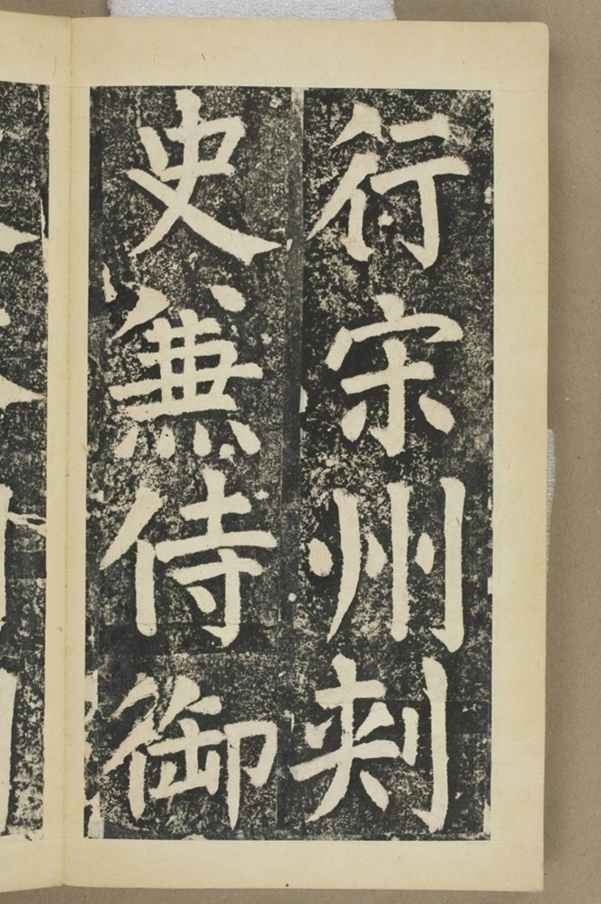 行宋州刾
史兼侍御